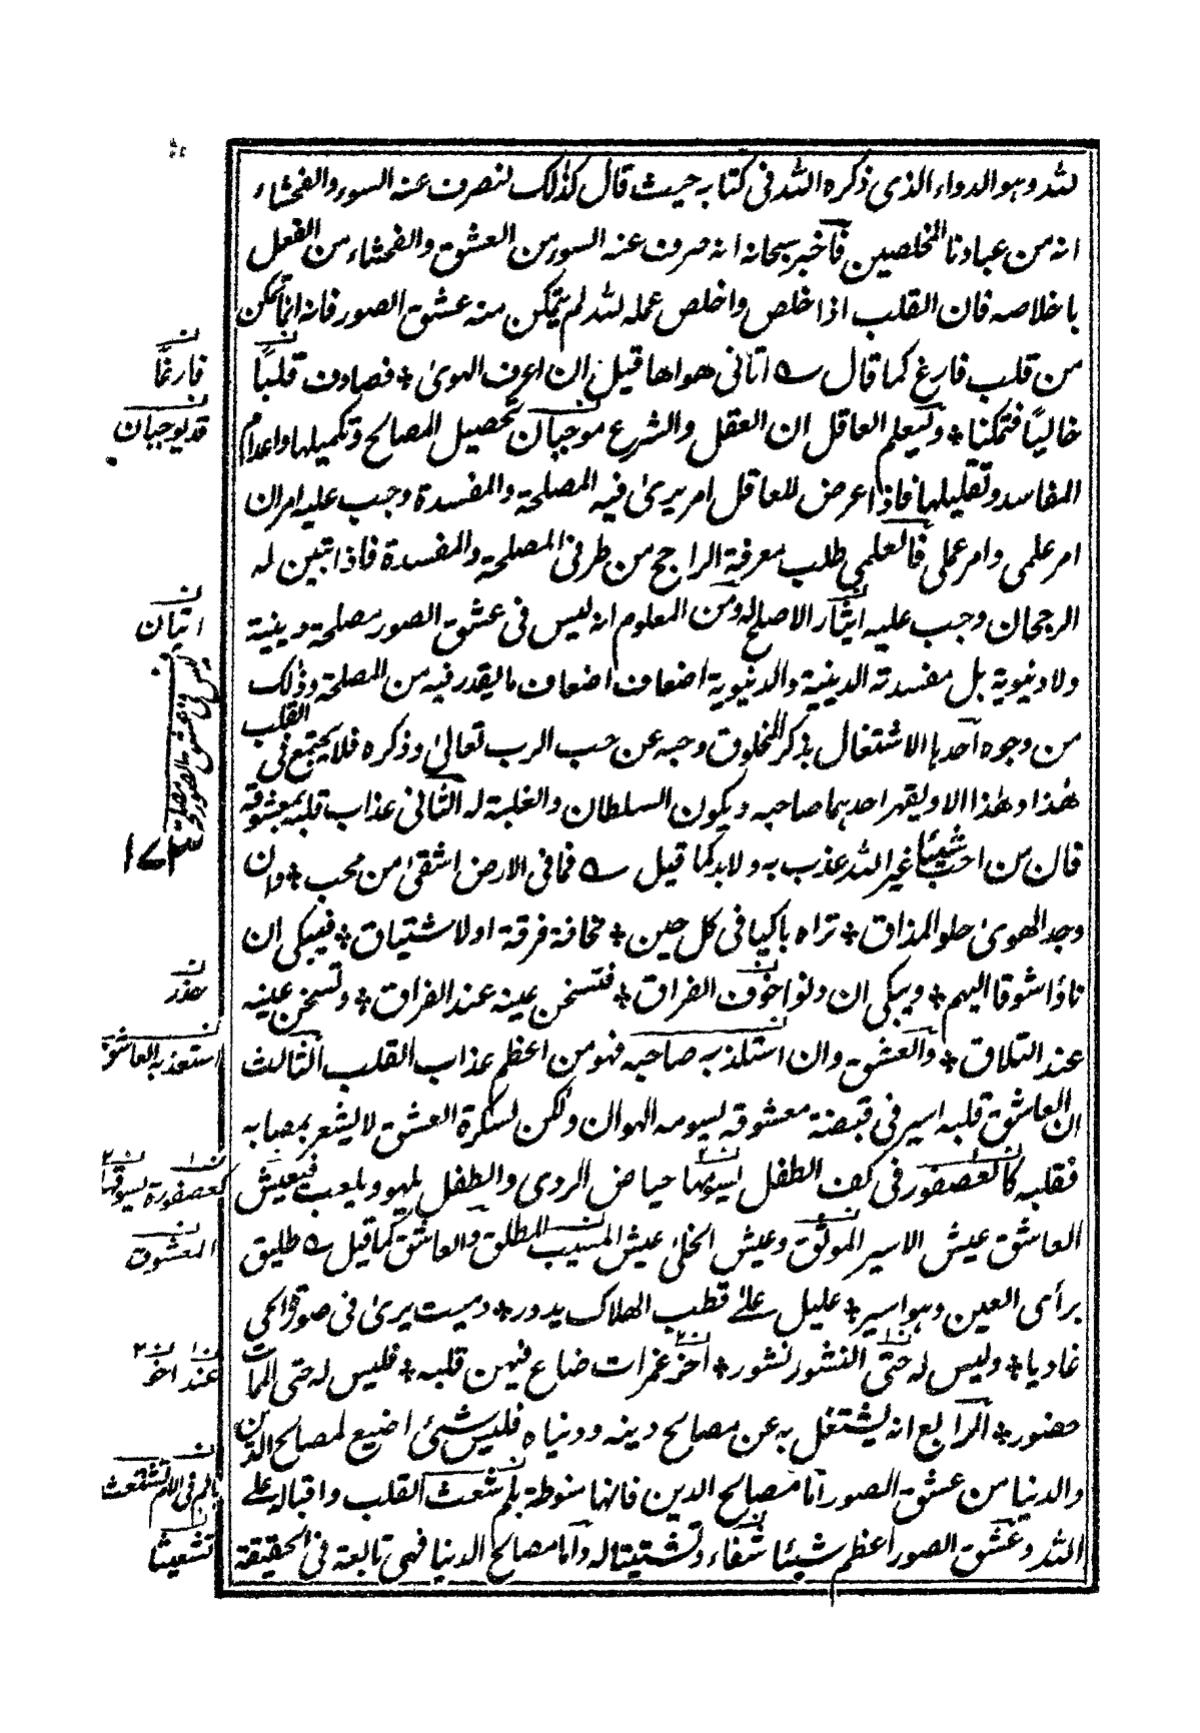 لله وهو الدواء الذي ذكره الله في كتابه حيث قال كذلك لنصرف عنه السوء والفحشاء
انه من عبادنا المخلصين فاخبر سبحانه انه صرف عنه السوء من العشق والفحشاء من الفعل
باخلاصه فان القلب اذا خلص واخلص عمله لله لم يتمكن منه عشق الصور فانه انما تمكن
من قلب فارغ كما قال ے اتانى هواها قيل ان اعرف الهوى * فصادف قلبًا
خاليًا فتمكنا * وليعلم العاقل ان العقل والشرع موجبان تحصيل المصالح وتكميلها واعدام
المفاسد وتقليلها فاذا عرض للعاقل امر يرى فيه المصلحة والمفسدة وجب عليه امران
امر علمي وامر عملي فالعلمي طلب معرفة الراجح من طرفي المصلحة والمفسدة فاذا تبين له
الرجحان وجب عليه ايثار الاصلح له ومن المعلوم انه ليس في عشق الصور مصلحة دينية
ولا دنيوية بل مفسدته الدينية والدنيوية اضعاف اضعاف ما يقدر فيه من المصلحة وذلك
من وجوه احدها الاشتغال بذكر المخلوق وحبه عن حب الرب تعالى وذكره فلا يجتمع في القلب
هذا وهذا الا ويقهر احدهما صاحبه ويكون السلطان والغلبة له الثاني عذاب قلبه بمعشوقه
فان من احب شيئا غير الله عذب به ولا بد كما قيل ے فما في الارض اشقى من محب * وان
وجد الهوى حلو المذاق * تراه باكيا في كل حين * مخافة فرقة او لاشتياق * فيبكى ان
ناؤا شوقا اليهم * ويبكى ان دنوا خوف الفراق * فتسخن عينه عند الفراق * وتسخن عينه
عند التلاق * والعشق وان استلذ به صاحبه فهو من اعظم عذاب القلب الثالث
ان العاشق قلبه اسير في قبضة معشوقه يسومه الهوان ولكن لسكرة العشق لا يشعر بمصابه
فقلبه كالعصفور في كف الطفل يسومها حياض الردى والطفل يلهو ويلعب فيعيش
العاشق عيش الاسير الموثق وعيش الخلى عيش المسيب المطلق والعاشق كما قيل ے طليق
برأى العين وهو اسير * عليل على قطب الهلاك يدور * وميت يرى في صورة الحي
غاديا * وليس له حتى النشور نشور * اخو غمرات ضاع فيهن قلبه * فليس له حتى الممات
حضور * الرابع انه يشتغل به عن مصالح دينه ودنياه فليس شئ اضيع لمصالح الدين
والدنيا من عشق الصور اما مصالح الدين فانها منوطة بلم شعث القلب واقباله على
الله وعشق الصور اعظم شيئا شفاء وتشتيتا له واما مصالح الدنيا فهي تابعة في الحقيقة
فارغًا
قد يوجبان
اتيان
ليس في عشق الصور مصلحة
١٧٣
حذر
استعذبه العاشق
كعصفورة يسوقها
المعشوق
عند اخر
تشعيثا